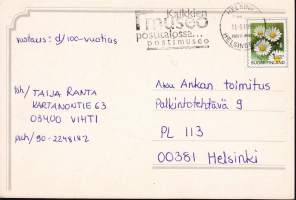 Kaikkien
museo
postitalossa...
postimuseo
HELSINKI
SUOMI FINLAND
vastaus: d/100-vuotias
läh/ TAIJA RANTA
KARTANONTIE 63
03400 VIHTI
puh/90-2248182
Aku Ankan toimitus
Palkintotehtävä 9
PL 113
00381 Helsinki